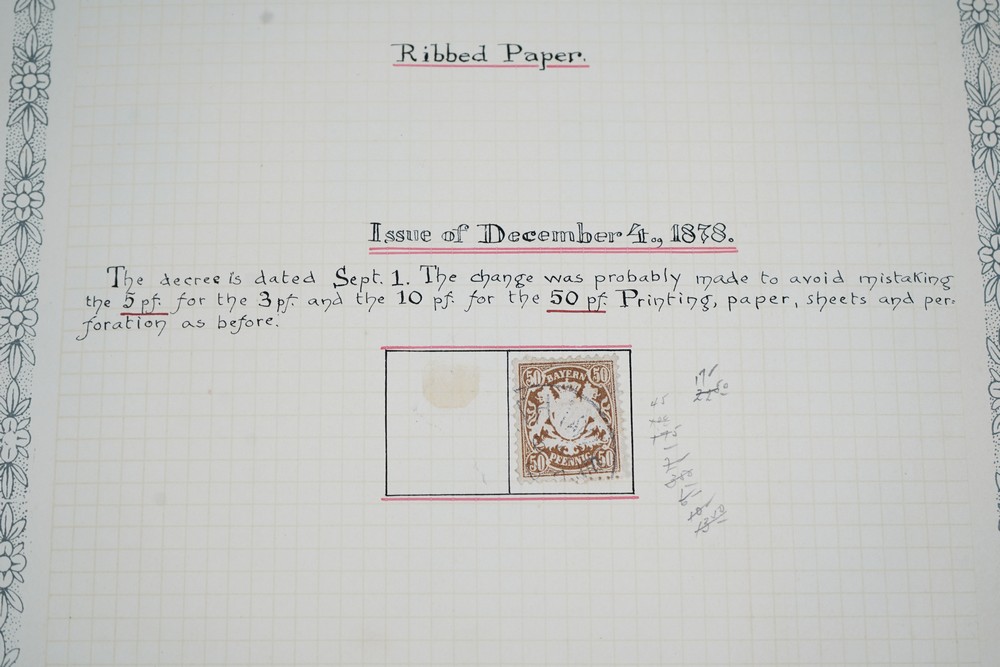 Ribbed Paper.
Issue of December 4., 1878.
The decree is dated Sept. 1. The change was probably made to avoid mistaking
the 5 pf. for the 3 pf. and the 10 pf. for the 50 pf. Printing, paper, sheets and per-
foration as before.
50 BAYERN 50
50 PFENNIG 50
45